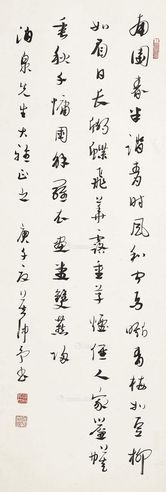 南園春半踏青時風和聞馬嘶青梅如豆柳
如眉日長蝴蝶飛華露重草煙低人家簾幕
垂秋千慵困解羅衣畫堂雙燕歸
泊泉先生大雅正之 庚子